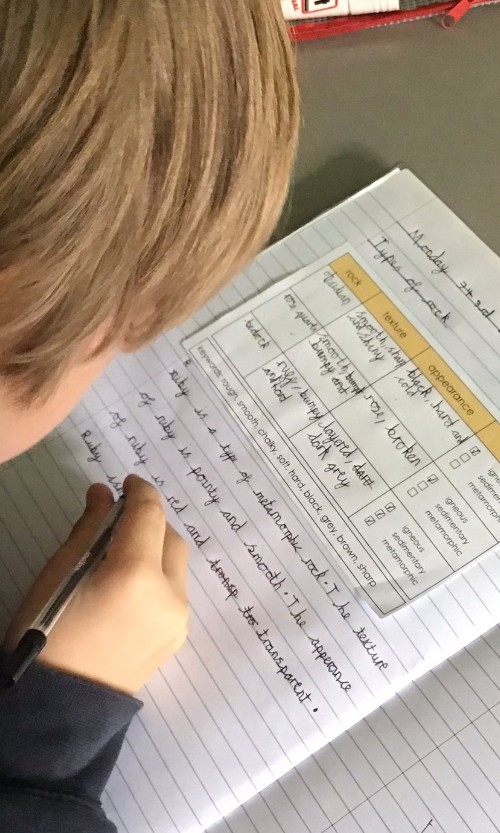 Monday
Types of rock
rock texture appearance
smooth, shiny black, hard and
and shiny cold
igneous
sedimentary
metamorphic
rose quartz smooth, bumpy rose, broken
bumpy and
igneous
sedimentary
metamorphic
bedrock bumpy layered
and hard dark grey
igneous
sedimentary
metamorphic
keywords: rough, smooth, chalky, soft, hard, black, grey, brown, sharp
ruby is a type of metamorphic rock. The texture
of ruby is pointy and smooth. The apperance
of ruby is red and transp tra transparent.
Ruby is